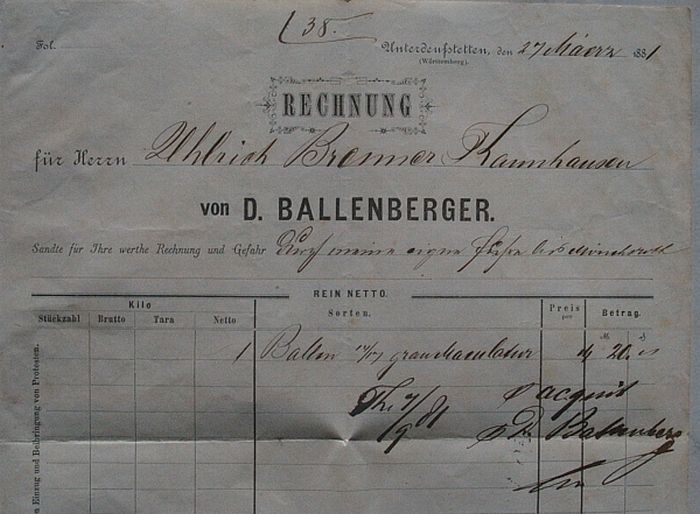 38.
Fol.
Unterdeufstetten, den 27 Maerz 1881
(Württemberg).
RECHNUNG
für Herrn Uhlrich Bremner Thannhausen
von D. BALLENBERGER.
Sandte für Ihre werthe Rechnung und Gefahr durch meine eigne
REIN NETTO.
Kilo
Stückzahl Brutto Tara Netto Sorten. Preis per Betrag.
M
1 Ballen grau Maculatur 20.
acquit
D. Ballenberg
en Einzug und Beibringung von Protesten.